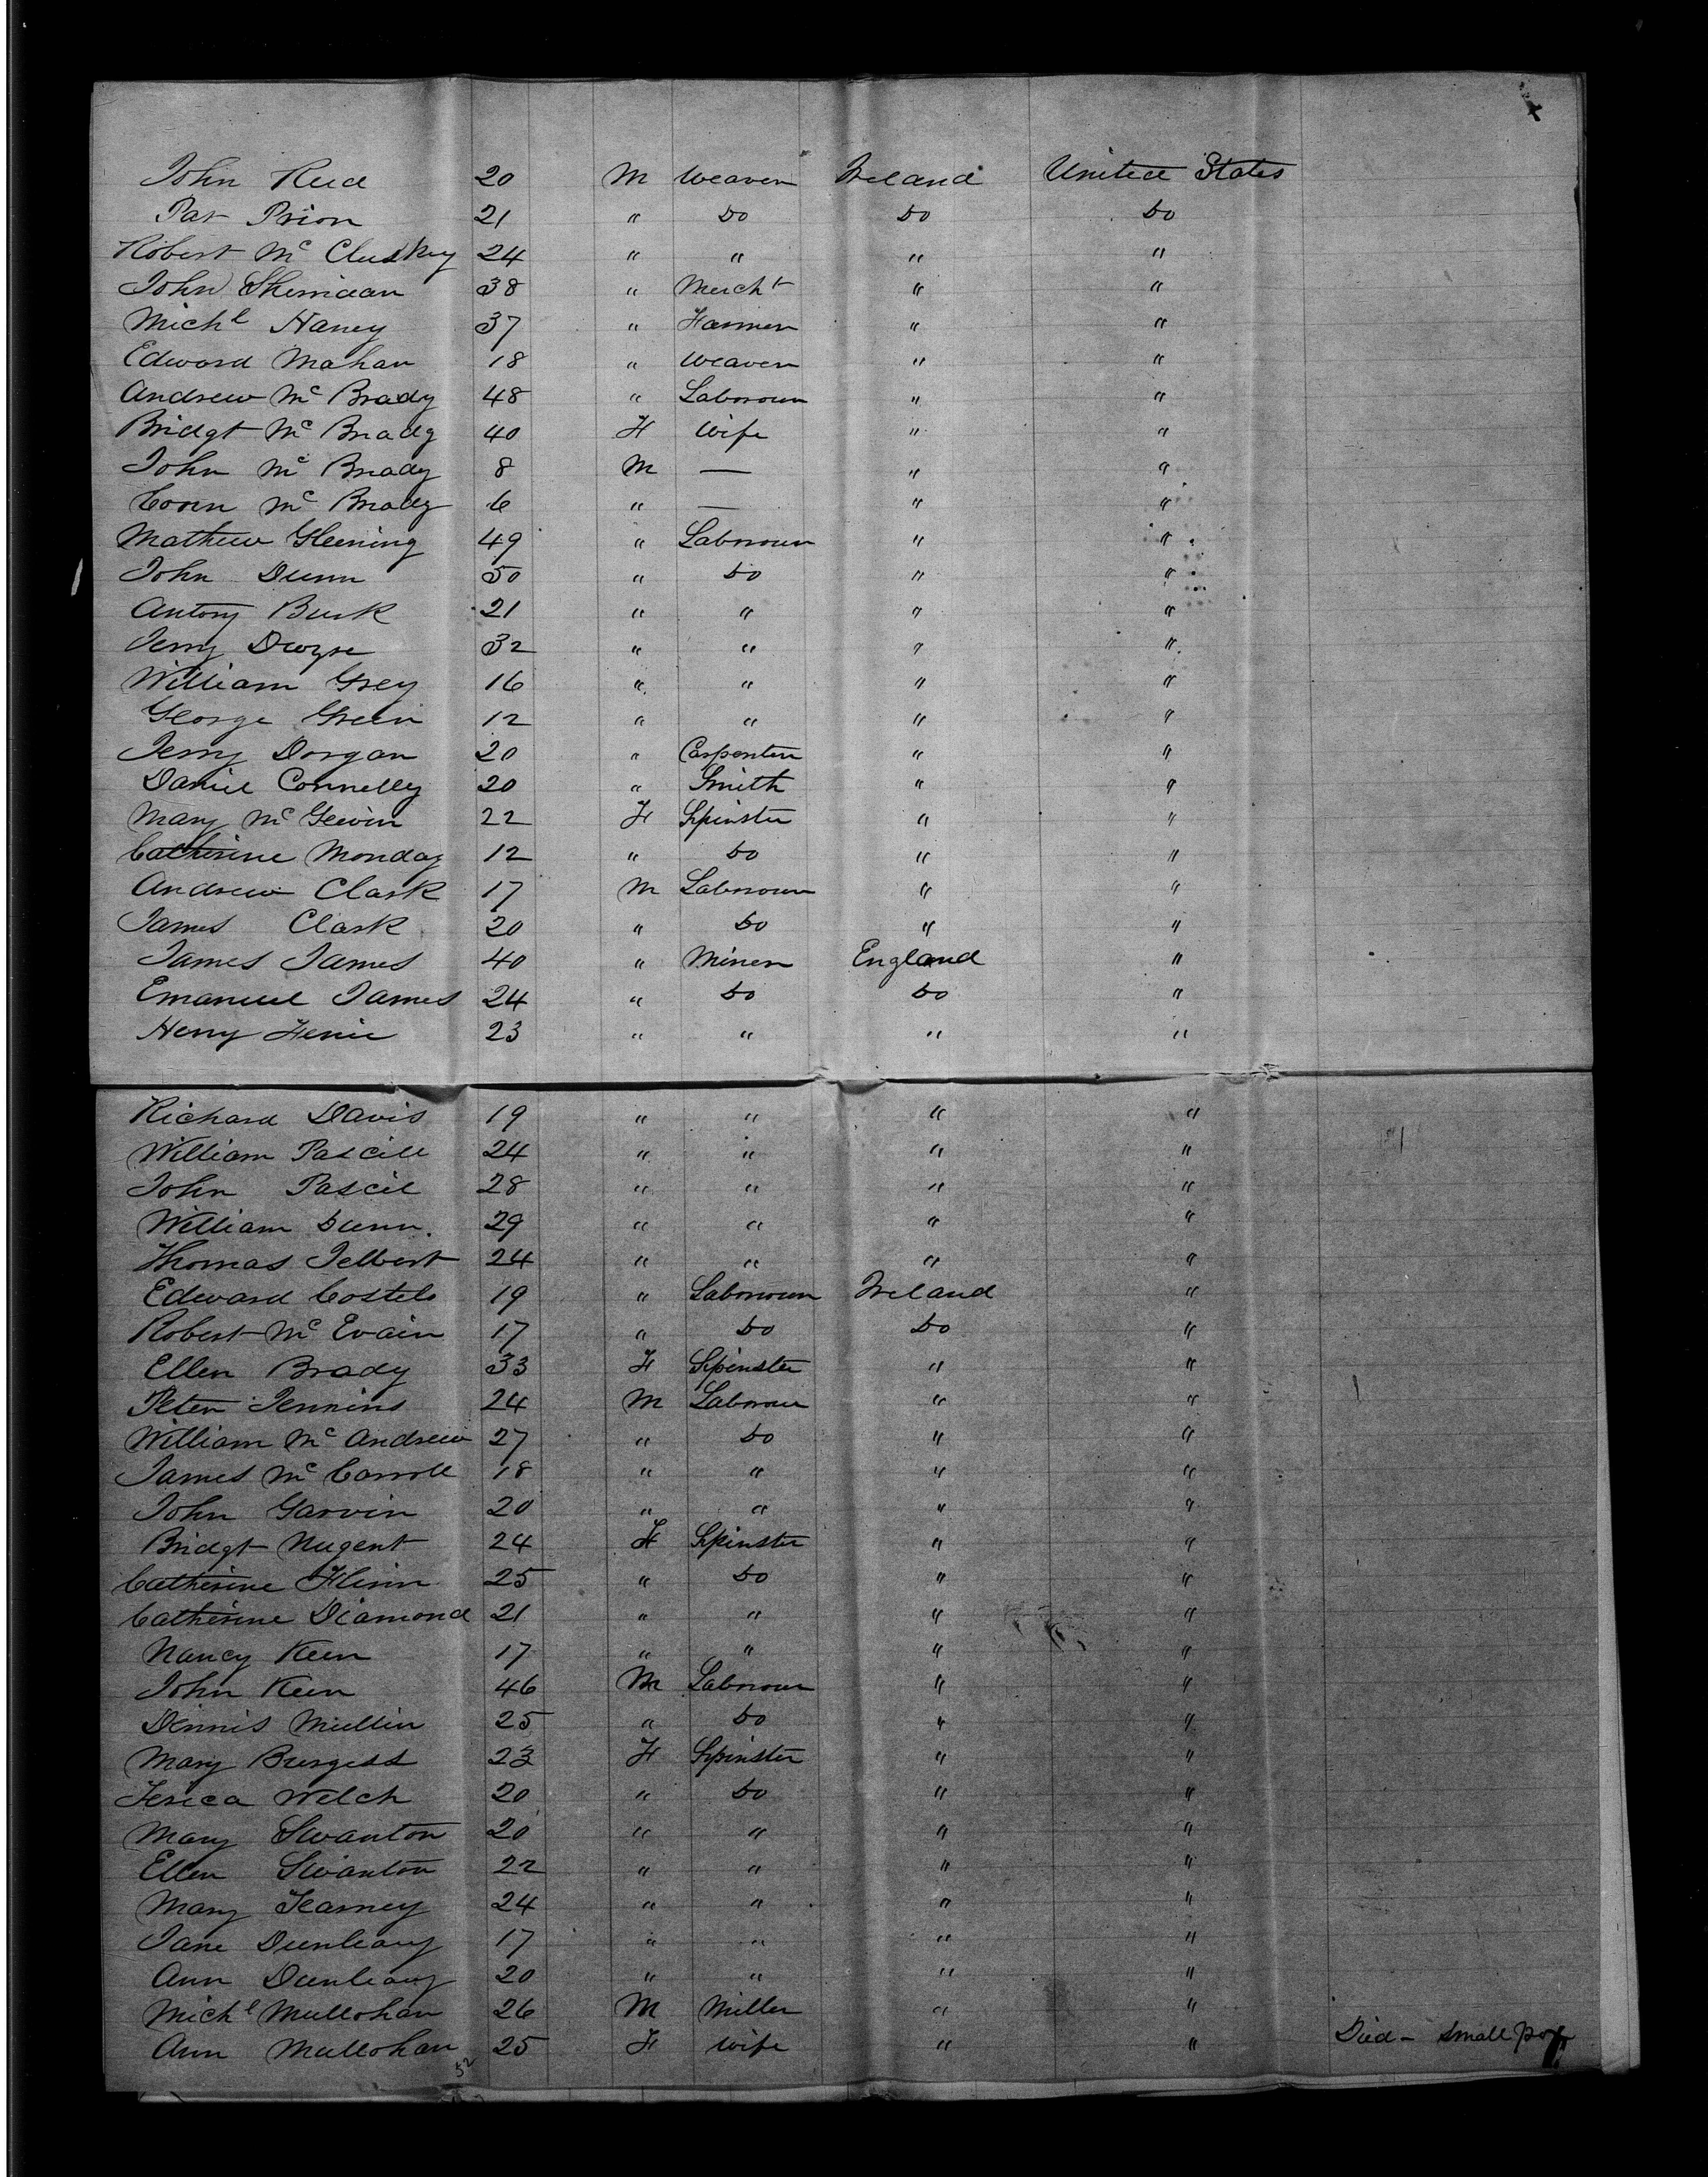 x
John Reid 20 M Weaver Ireland United States
Pat Prion 21 " Do Do Do
Robert Mc Cluskey 24 " " " "
John Sherridan 38 " Mercht " "
Michl Haney 37 " Farmer " "
Edward Mahan 18 " Weaver " "
Andrew Mc Brady 48 " Labourer " "
Bridgt Mc Brady 40 F Wife " "
John Mc Brady 8 M — " "
Conn Mc Brady 6 " — " "
Mathew Gleening 49 " Labourer " "
John Dunn 50 " Do " "
Antony Burk 21 " " " "
Jerry Dwyre 32 " " " "
William Grey 16 " " " "
George Green 12 " " " "
Jerry Dorgan 20 " Carpenter " "
Daniel Connelly 20 " Smith " "
Mary Mc Gewin 22 F Spinster " "
Catherine Monday 12 " Do " "
Andrew Clark 17 M Labourer " "
James Clark 20 " Do " "
James James 40 " Miner England "
Emanuel James 24 " Do Do "
Henry 23 " " " "
Richard Davis 19 " " " "
William Pascill 24 " " " "
John Pascil 28 " " " "
William Dunn. 29 " " " "
Thomas Jelbert 24 " " " "
Edward Costelo 19 " Labourer Ireland "
Robert Mc Evain 17 " Do Do "
Ellen Brady 33 F Spinster " "
Peter Jennins 24 M Labourer " "
William Mc Andrew 27 " Do " "
James Mc Carroll 18 " " " "
John Garvin 20 " " " "
Bridgt Nugent 24 F Spinster " "
Catherine Flinn 25 " Do " "
Catherine Diamond 21 " " " "
Nancy Keen 17 " " " "
John Keen 46 M Labourer " "
Dennis Mullin 25 " Do " "
Mary Burgess 23 F Spinster " "
Welch 20 " Do " "
Mary Swanton 20 " " " "
Ellen Swanton 22 " " " "
Mary Kearney 24 " " " "
Jane Dunleavy 17 " " " "
Ann Dunleavy 20 " " " "
Michl Mullohan 26 M Miller " "
Ann Mullohan 25 F Wife " " Died - Small Pox
52